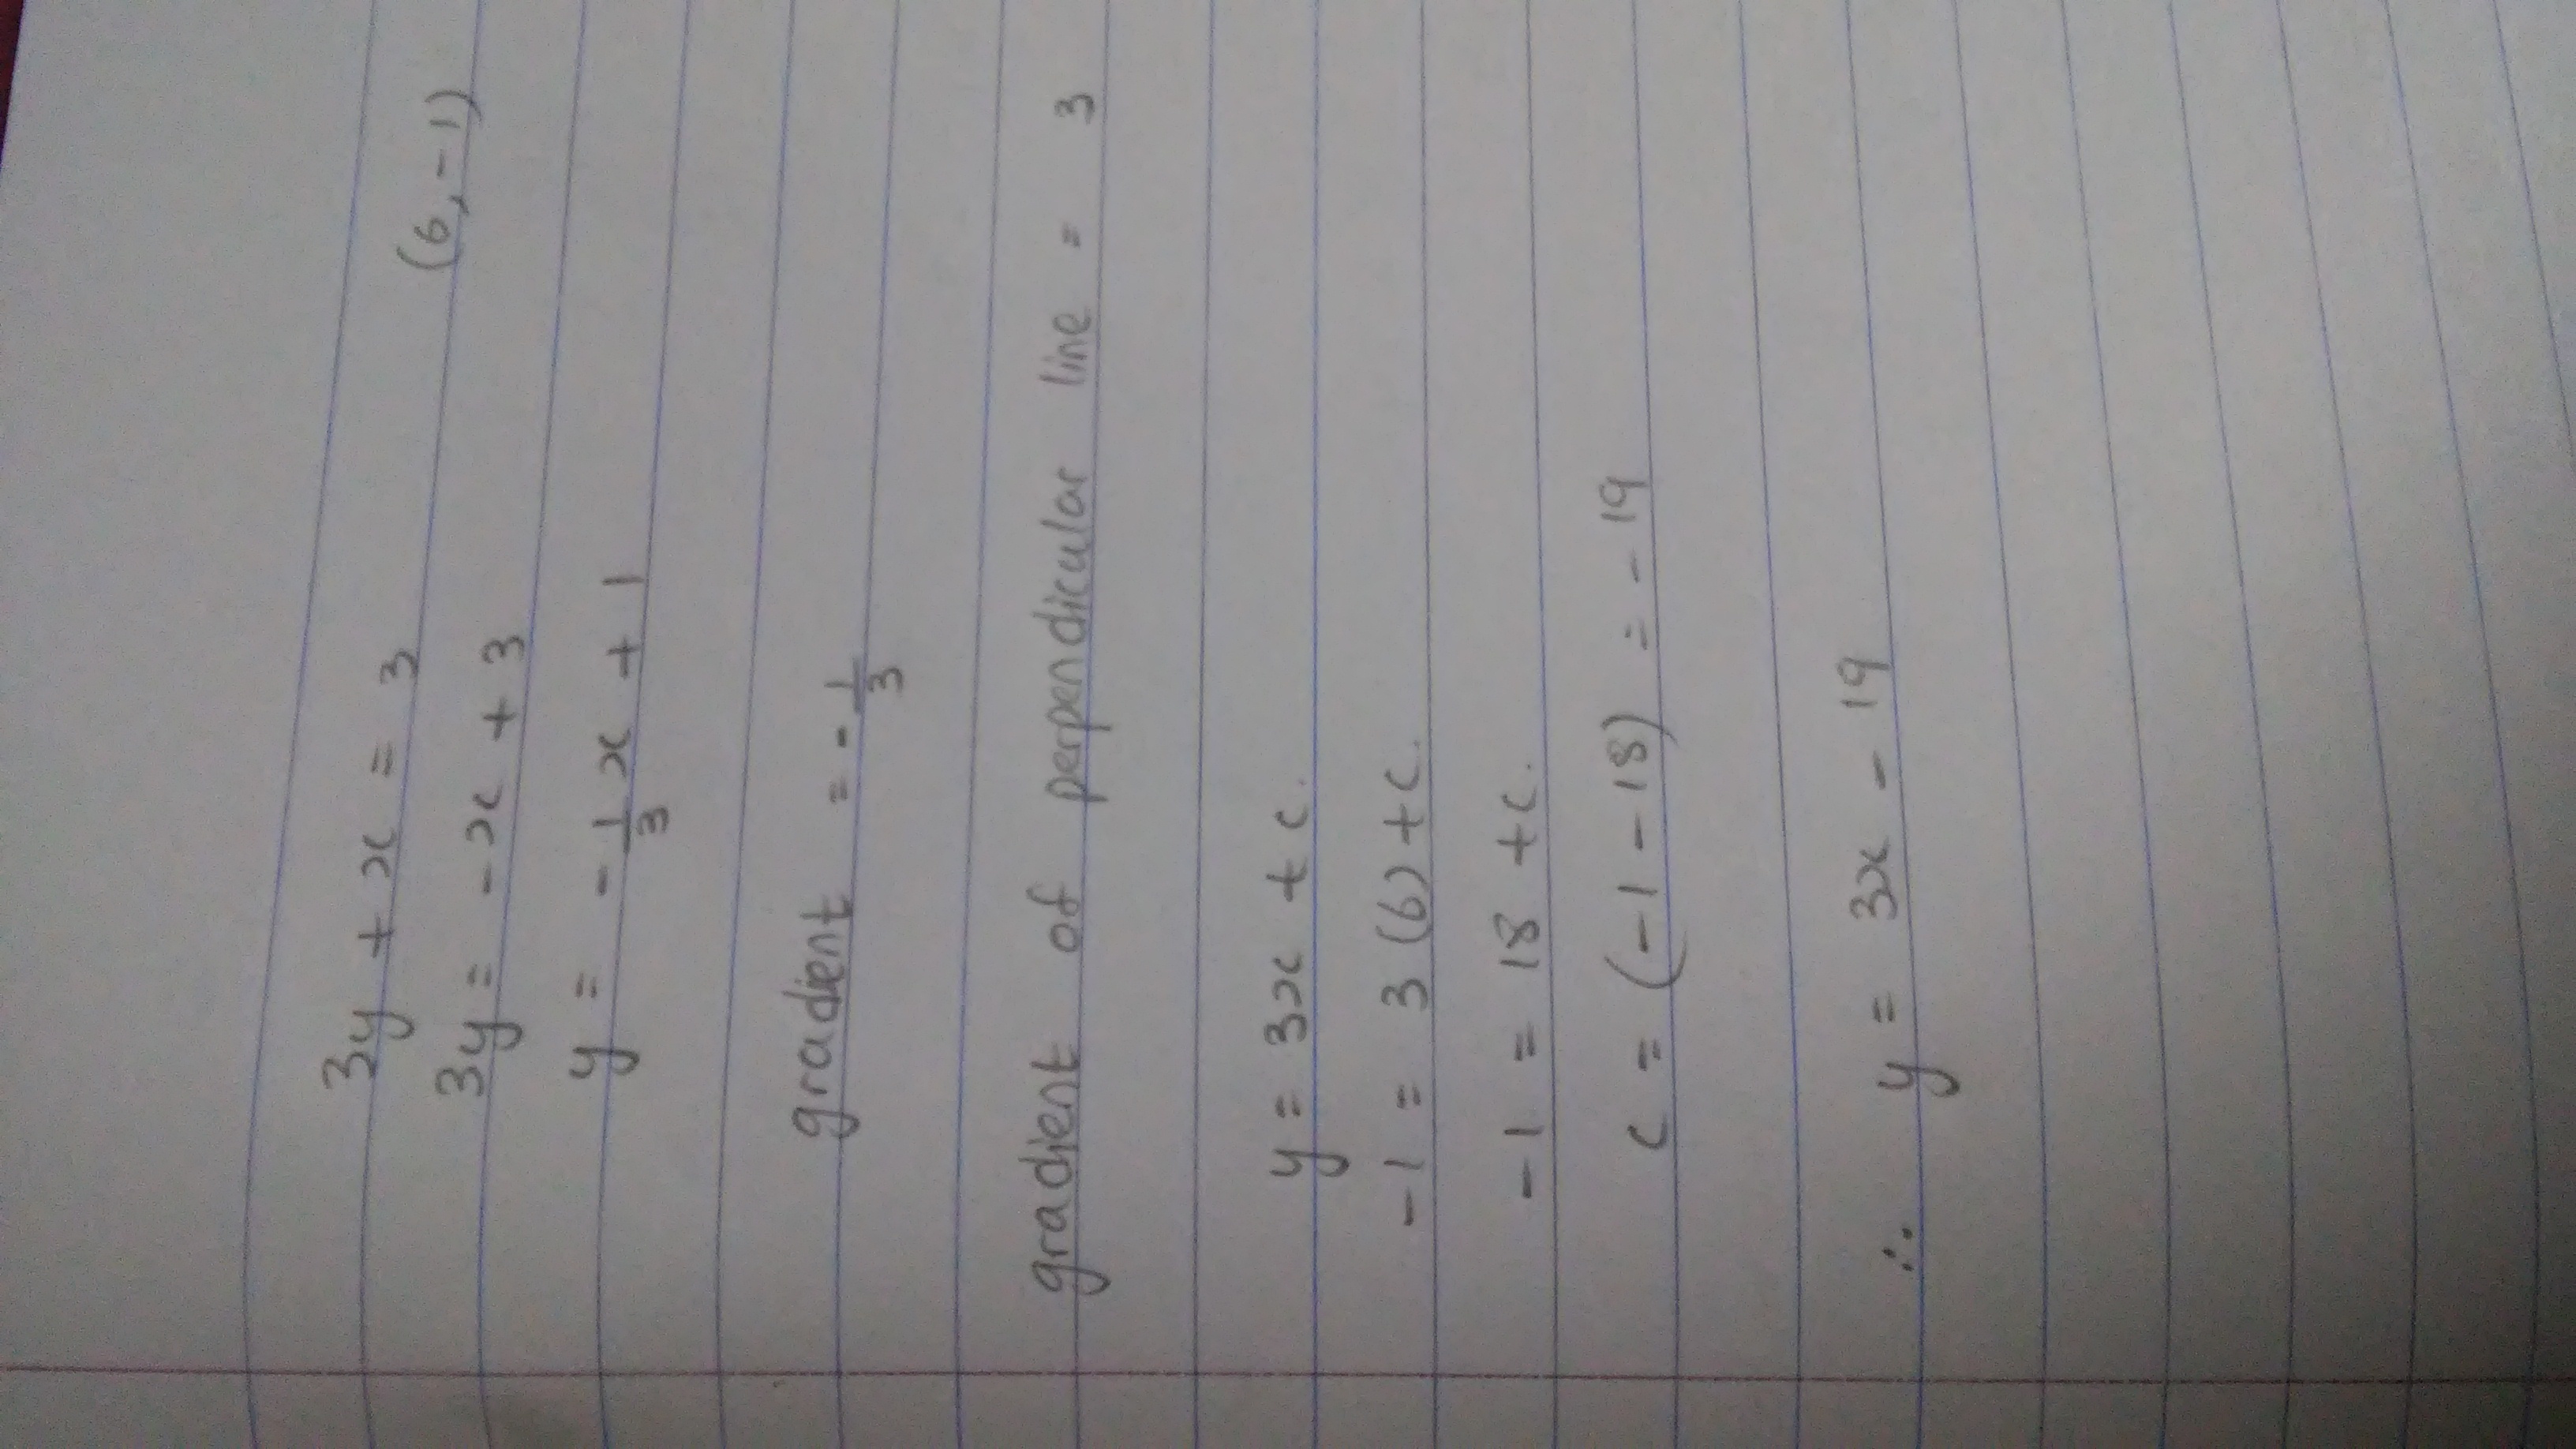 3y + x = 3 (6, -1)
3y = -x + 3
y = -1/3 x + 1
gradient = -1/3
gradient of perpendicular line = 3
y = 3x + c.
-1 = 3(6) + c.
-1 = 18 + c.
c = (-1 - 18) = -19
∴ y = 3x - 19